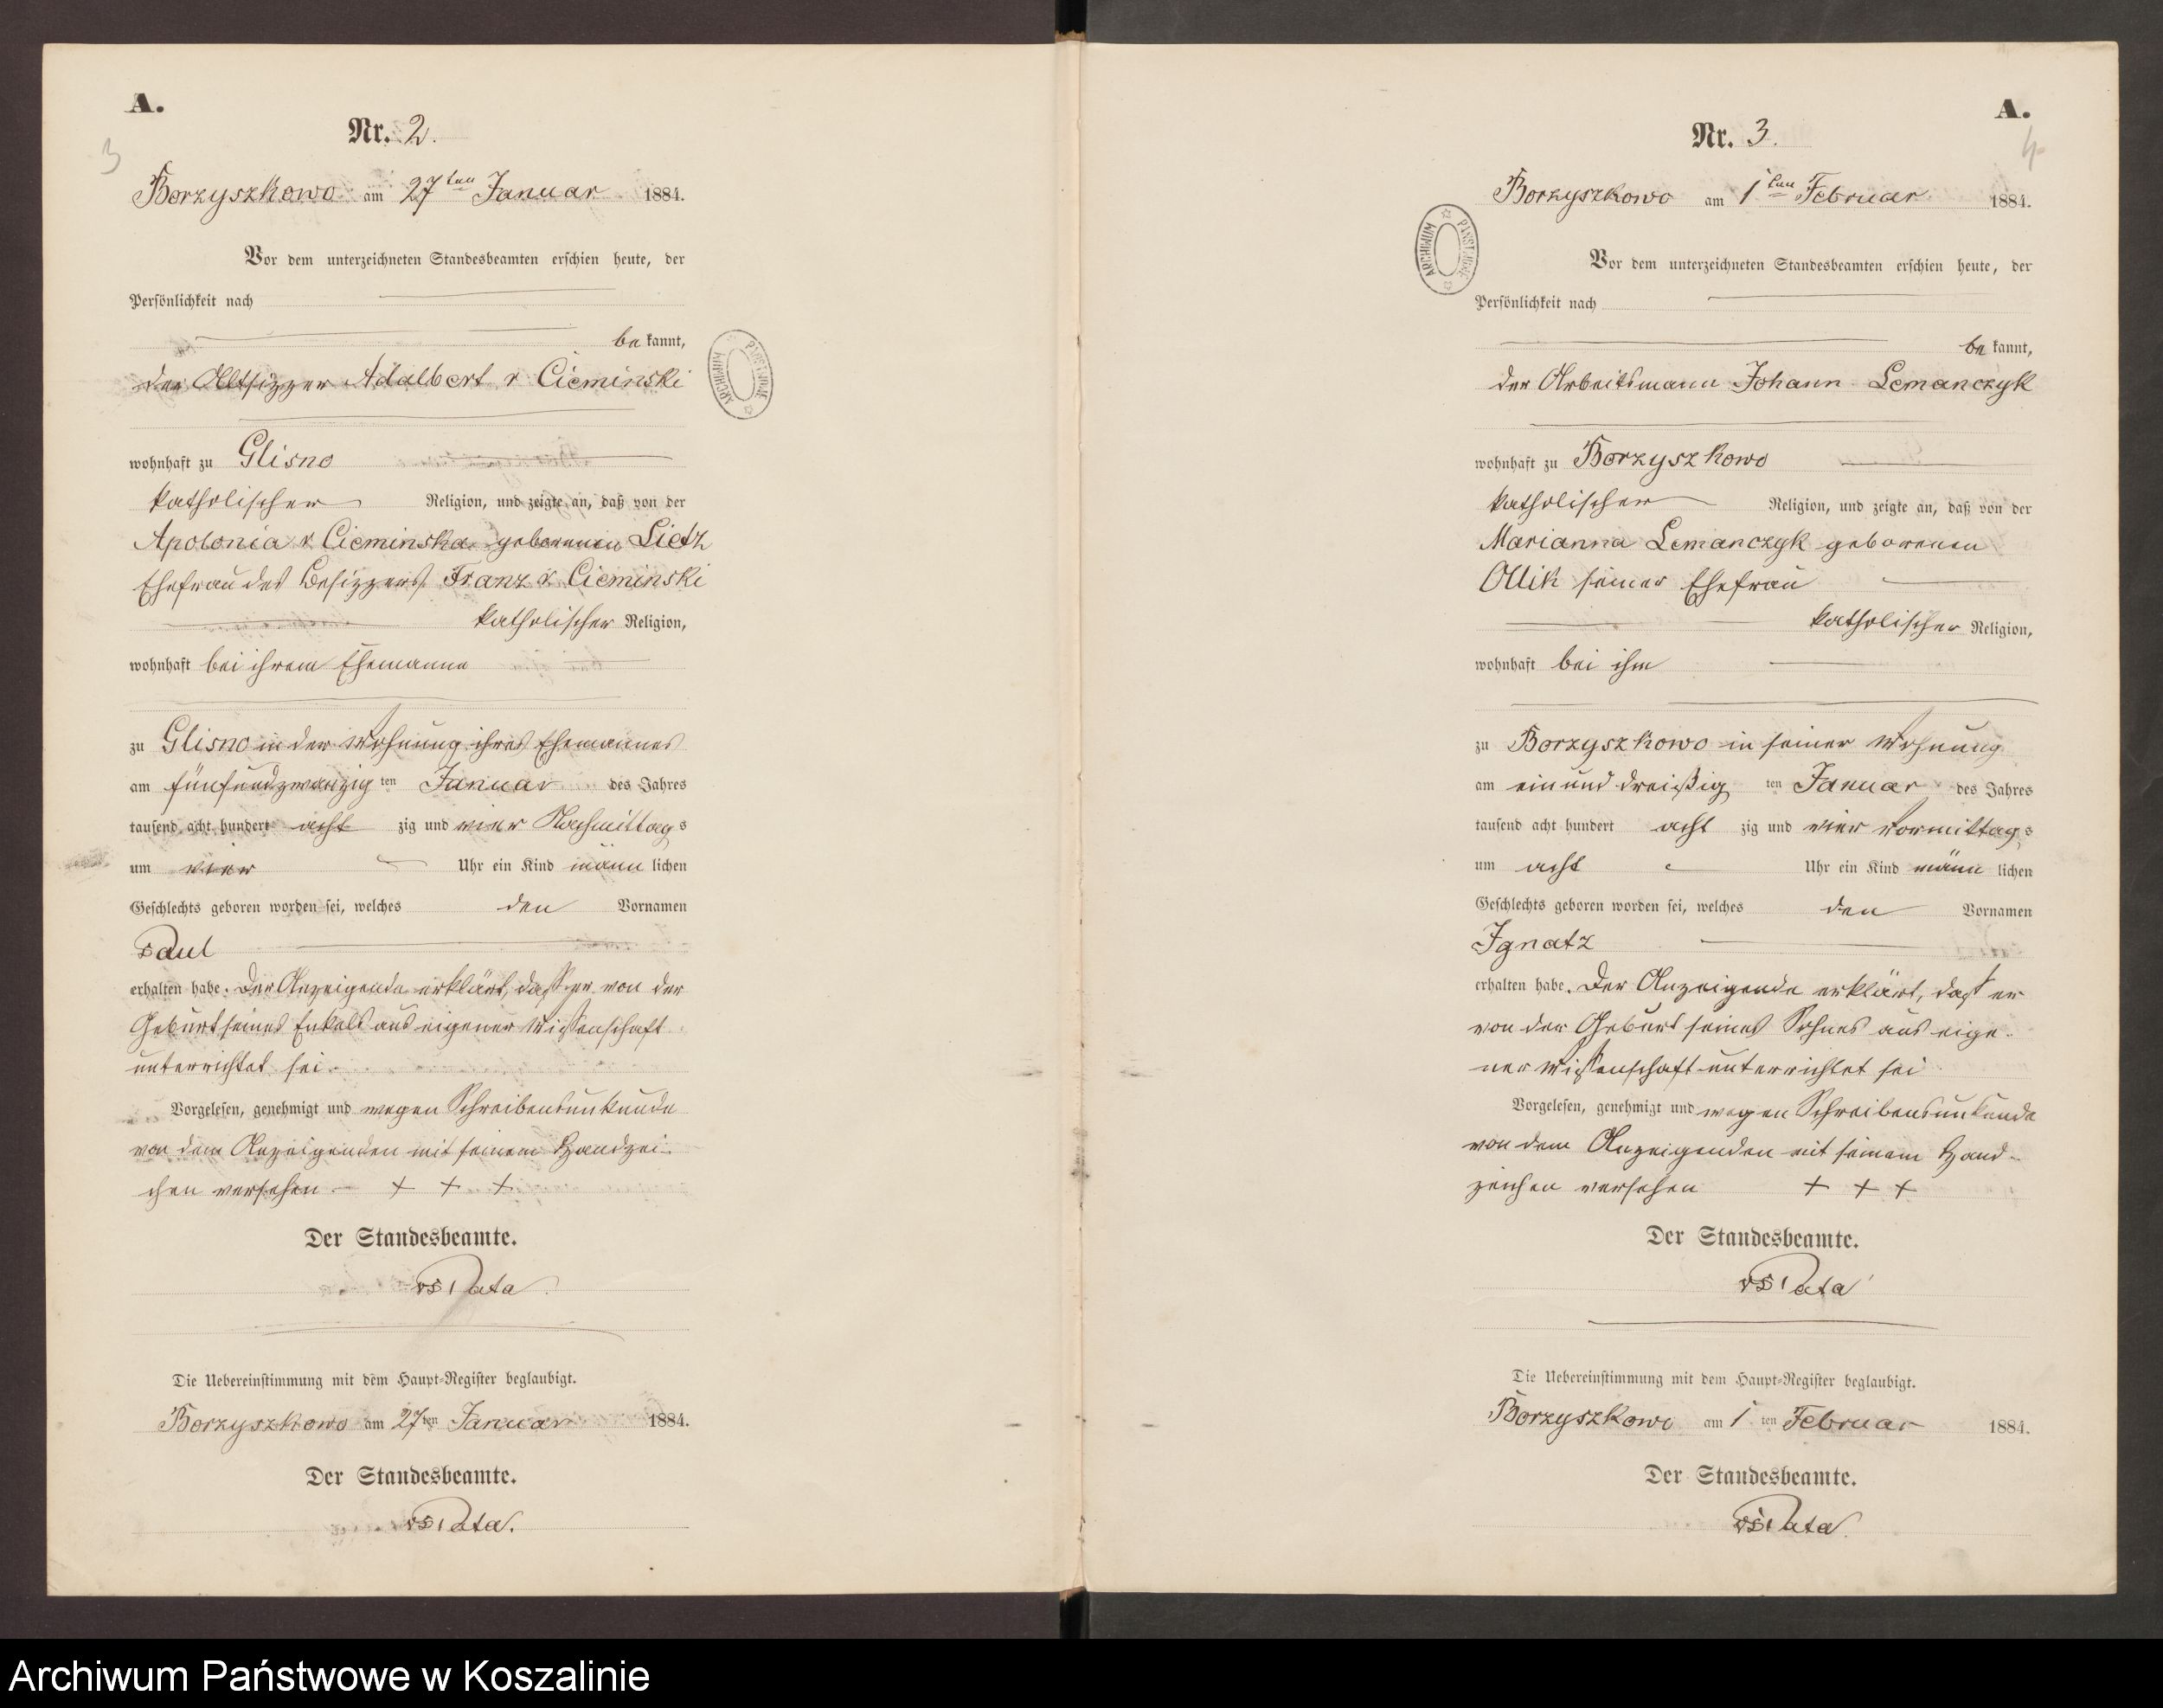 A.
Nr. 2.
3
Borzyszkowo am 27ten Januar 1884.
Vor dem unterzeichneten Standesbeamten erschien heute, der
Persönlichkeit nach
be kannt,
der Altsizzer Adalbert v Cieminski
wohnhaft zu Glisno
katholischer Religion, und zeigte an, daß von der
Apolonia v Cieminska geborenen Lietz
Ehefrau des Besizzers Franz v Cieminski
katholischer Religion,
wohnhaft bei ihrem Ehemanne
zu Glisno in der Wohnung ihres Ehemannes
am fünfundzwanzig ten Januar des Jahres
tausend acht hundert acht zig und vier Nachmittag s
um vier Uhr ein Kind männ lichen
Geschlechts geboren worden sei, welches den Vornamen
Paul
erhalten habe. Der Anzeigende erklärt, dasser von der
Geburt seines Enkels aus eigener Wissenschaft
unterrichtet sei.
Vorgelesen, genehmigt und wegen Schreibensunkunde
von dem Anzeigenden mit seinem Handzei-
chen versehen - + + +
Der Standesbeamte.
Pata
Die Uebereinstimmung mit dem Haupt-Register beglaubigt.
Borzyszkowo am 27ten Januar 1884.
Der Standesbeamte.
Pata.
ARCHIWUM PAŃSTWOWE
A.
Nr. 3.
4
Borzyszkowo am 1ten Februar 1884.
Vor dem unterzeichneten Standesbeamten erschien heute, der
Persönlichkeit nach
be kannt,
der Arbeitsmann Johann Lemanczyk
wohnhaft zu Borzyszkowo
katholischer Religion, und zeigte an, daß von der
Marianna Lemanczyk geborenen
Ollik seiner Ehefrau
katholischer Religion,
wohnhaft bei ihm
zu Borzyszkowo in seiner Wohnung
am ein und dreißig ten Januar des Jahres
tausend acht hundert acht zig und vier Vormittag s
um acht Uhr ein Kind männ lichen
Geschlechts geboren worden sei, welches den Vornamen
Ignatz
erhalten habe. Der Anzeigende erklärt, dast er
von der Geburt seines Sohnes aus eige-
ner Wissenschaft unterrichtet sei
Vorgelesen, genehmigt und wegen Schreibensunkunde
von dem Anzeigenden mit seinem Hand-
zeichen versehen + + +
Der Standesbeamte.
Pata
Die Uebereinstimmung mit dem Haupt-Register beglaubigt.
Borzyszkowo am 1 ten Februar 1884.
Der Standesbeamte.
Pata
ARCHIWUM PAŃSTWOWE
Archiwum Państwowe w Koszalinie